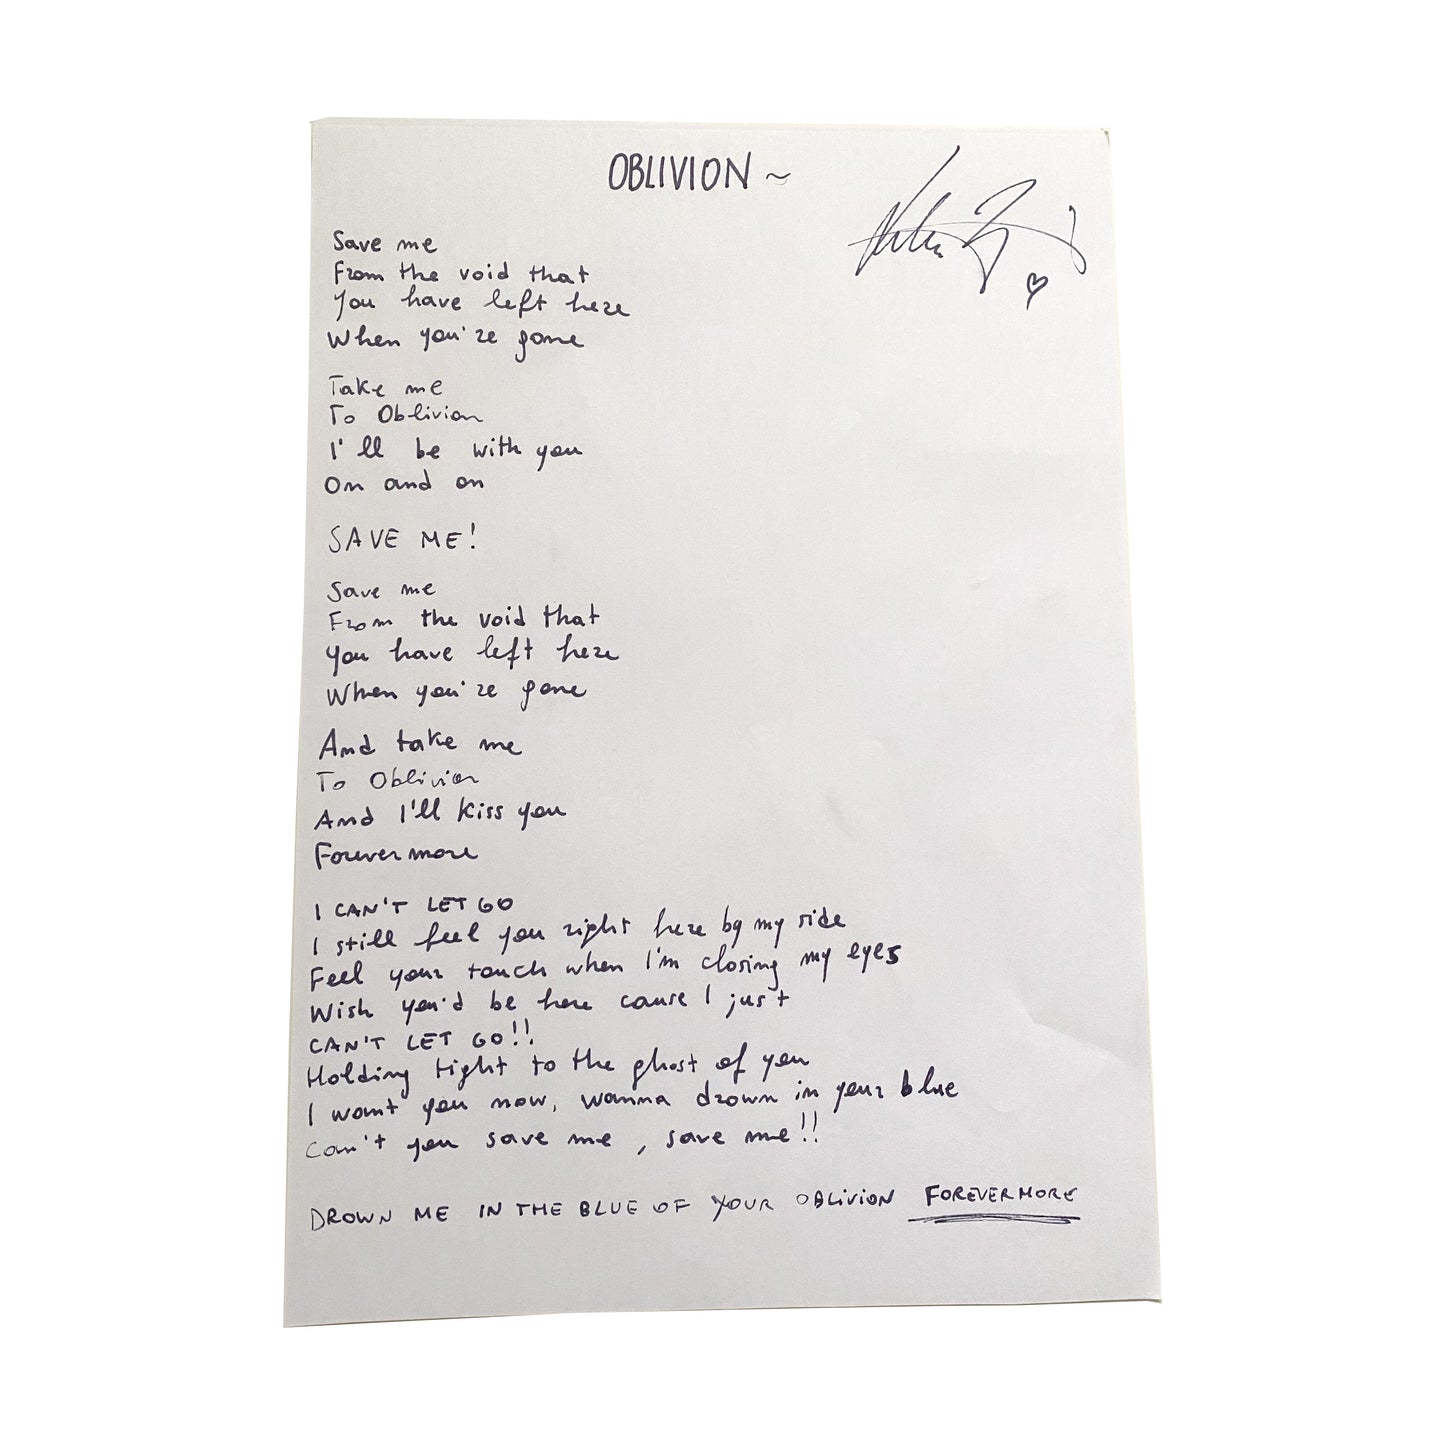 OBLIVION ~
Save me
From the void that
You have left here
When you're gone
Take me
To Oblivion
I'll be with you
On and on
SAVE ME!
Save me
From the void that
You have left here
When you're gone
And take me
To Oblivion
And I'll kiss you
Forevermore
I CAN'T LET GO
I still feel you right here by my side
Feel your touch when I'm closing my eyes
Wish you'd be here cause I just
CAN'T LET GO!!
Holding tight to the ghost of you
I want you now, wanna drown in your blue
Can't you save me, save me!!
DROWN ME IN THE BLUE OF YOUR OBLIVION FOREVERMORE